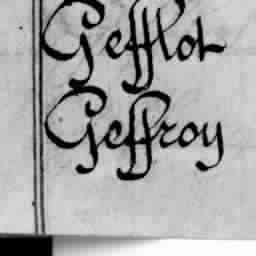 Gefflot
Geffroy